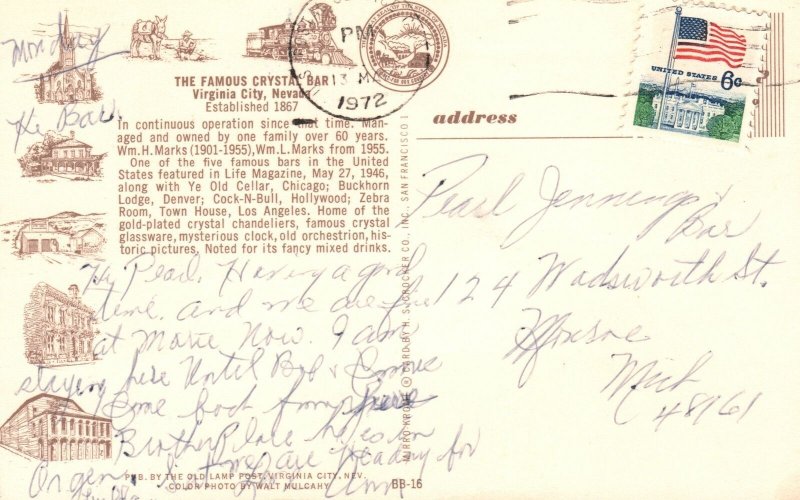 Monday
Hi Bar.
THE FAMOUS CRYSTAL BAR
Virginia City, Nevada
Established 1867
In continuous operation since that time. Man-
aged and owned by one family over 60 years.
Wm. H. Marks (1901-1955), Wm. L. Marks from 1955.
One of the five famous bars in the United
States featured in Life Magazine, May 27, 1946,
along with Ye Old Cellar, Chicago; Buckhorn
Lodge, Denver; Cock-N-Bull, Hollywood; Zebra
Room, Town House, Los Angeles. Home of the
gold-plated crystal chandeliers, famous crystal
glassware, mysterious clock, old orchestrion, his-
toric pictures. Noted for its fancy mixed drinks.
Hi Pearl. Having a good
time. and we are
at Marie Now. I am
staying here Until Bob &
Come back from
Brother Place he is in
are Heading for
PUB. BY THE OLD LAMP POST, VIRGINIA CITY, NEV.
COLOR PHOTO BY WALT MULCAHY
BB-16
MIRRO-KROME ® CARD BY H. S. CROCKER CO., INC. SAN FRANCISCO 1
PM
13
1972
UNITED STATES 6c
address
Pearl Jennings &
Bar
124 Wadsworth St.
Monroe
Mich
48161